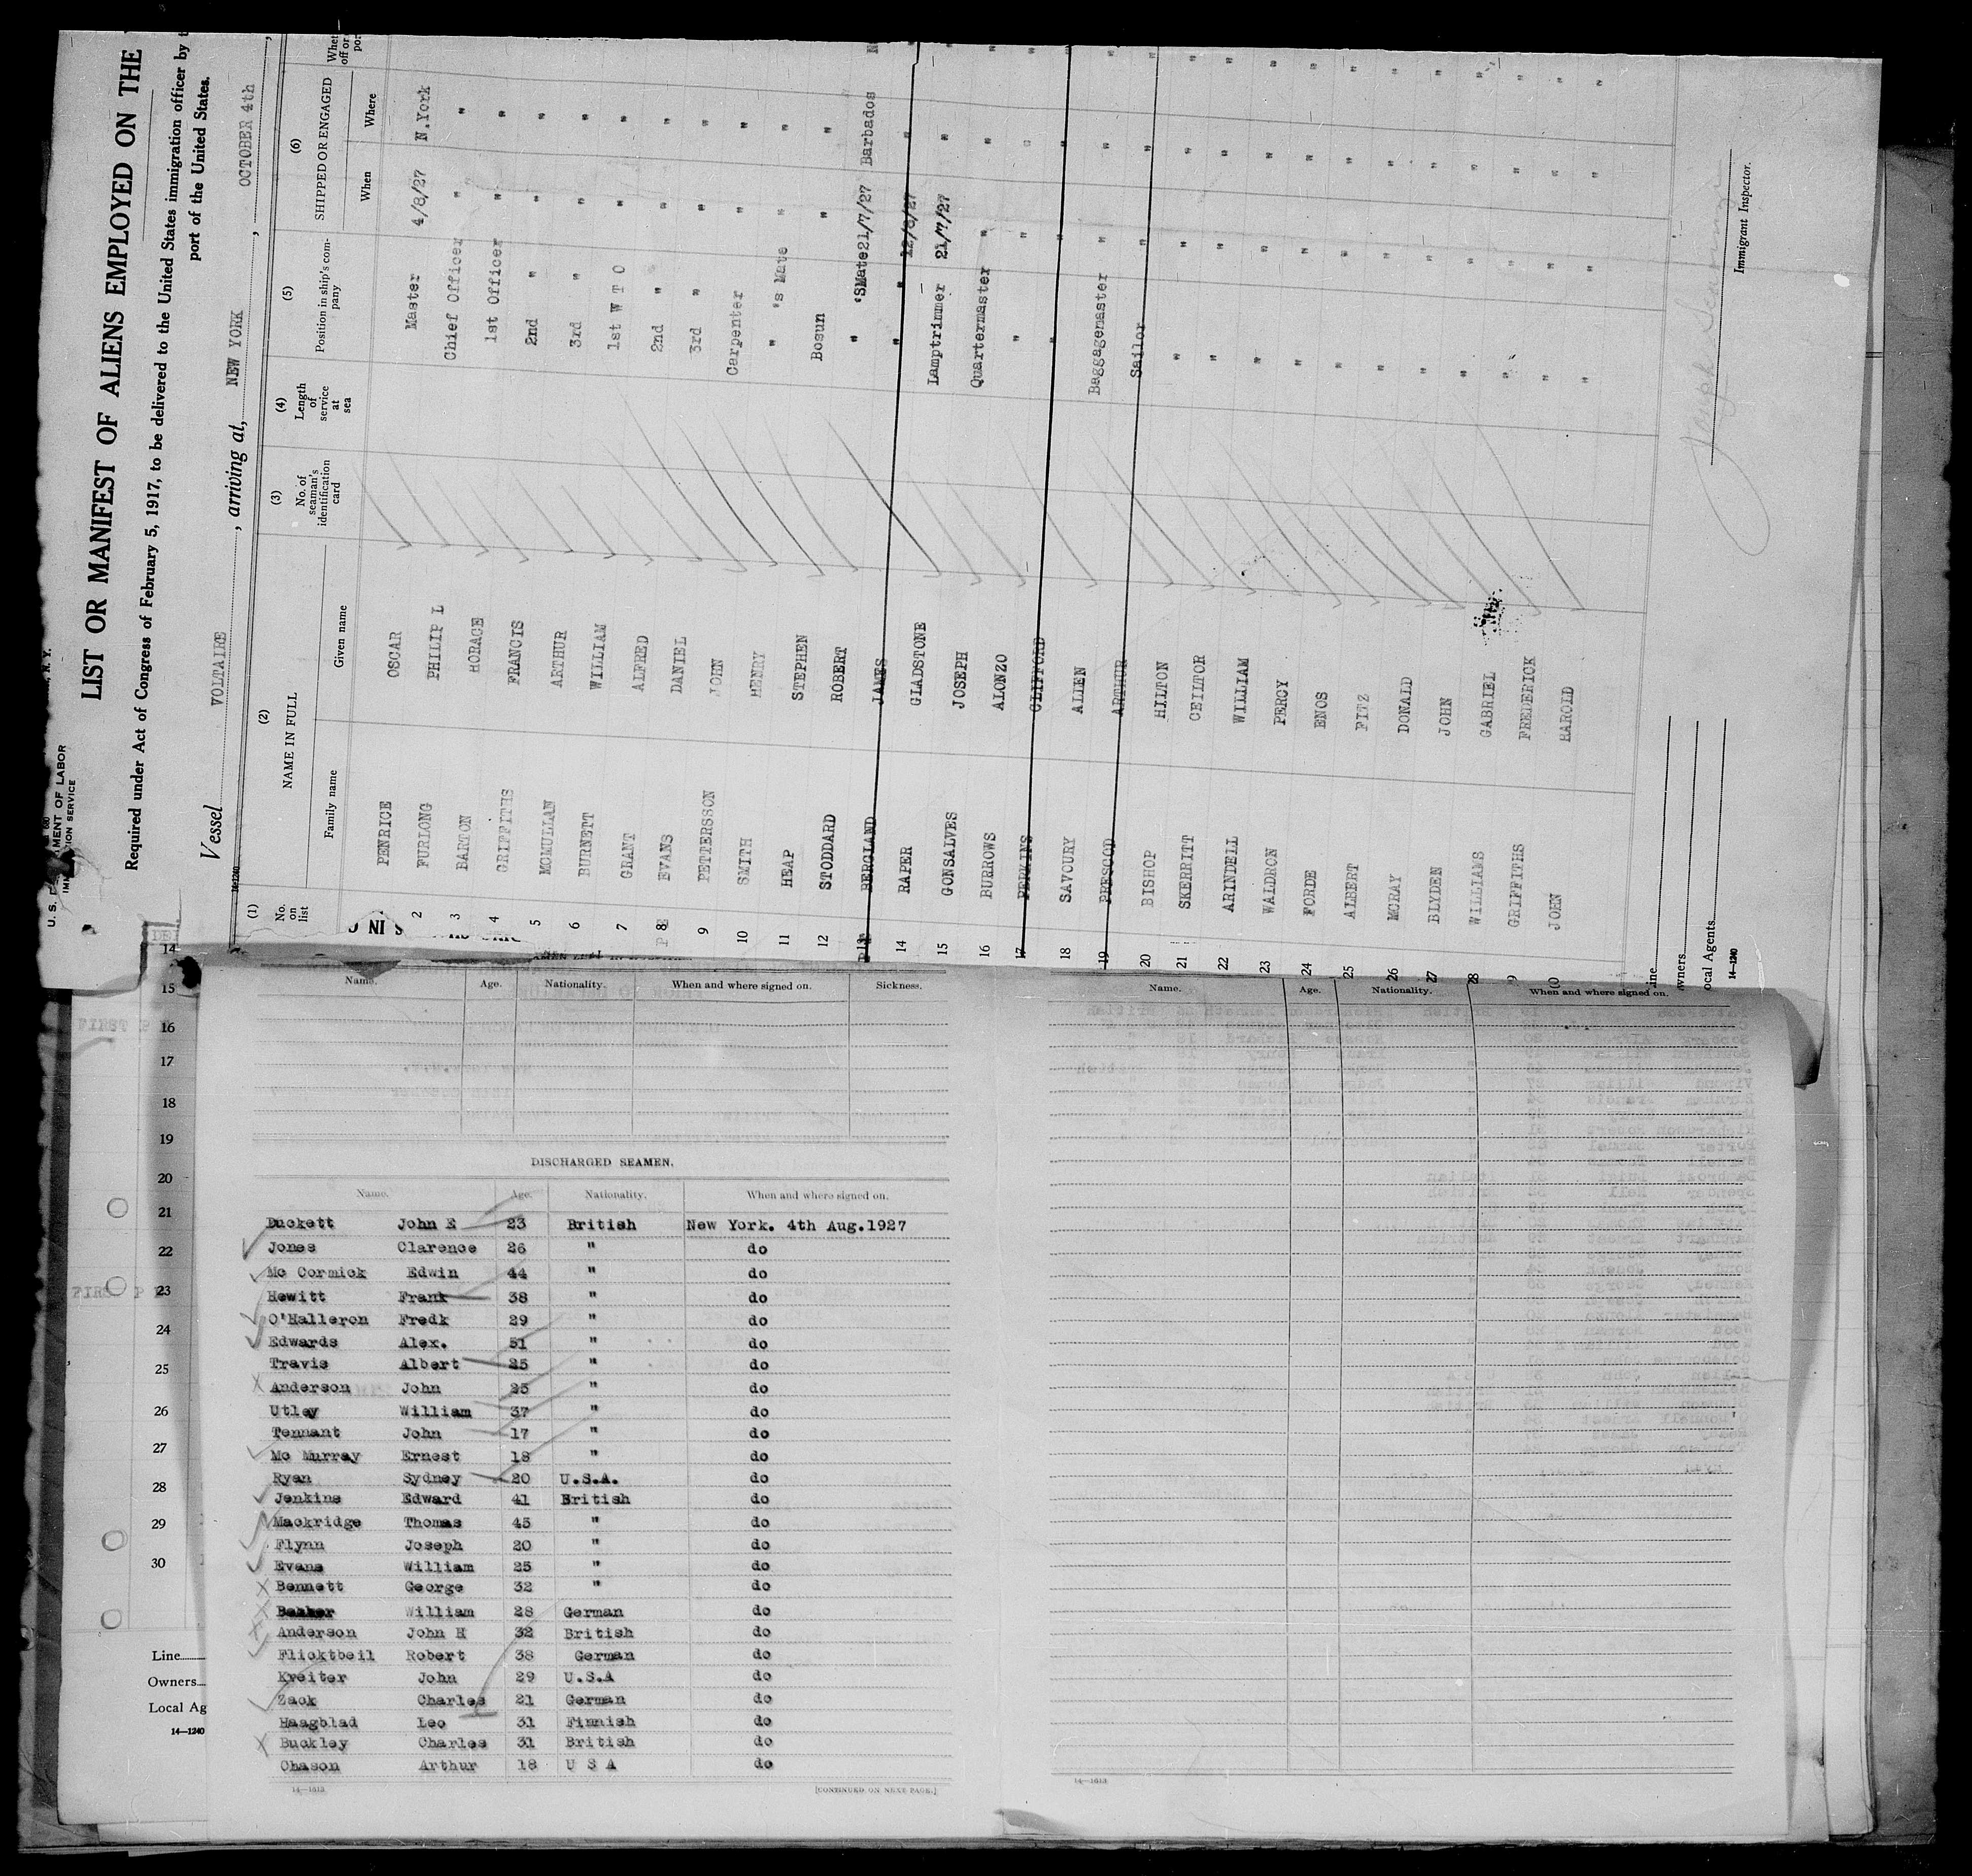 U. S. DEPARTMENT OF LABOR
IMMIGRATION SERVICE
LIST OR MANIFEST OF ALIENS EMPLOYED ON THE
Required under Act of Congress of February 5, 1917, to be delivered to the United States immigration officer by t
port of the United States.
Vessel VOLTAIRE, arriving at, NEW YORK, OCTOBER 4th,
(1) (2) (3) (4) (5) (6)
No. on list NAME IN FULL No. of seaman's identification card Length of service at sea Position in ship's company SHIPPED OR ENGAGED
Family name Given name When Where
PENRICE OSCAR Master 4/8/27 N.York
2 FURLONG PHILIP L Chief Officer " "
3 BARTON HORACE 1st Officer " "
4 GRIFFITHS FRANCIS 2nd " " "
5 MCMULLAN ARTHUR 3rd " " "
6 BURNETT WILLIAM 1st W T O " "
7 GRANT ALFRED 2nd " " "
8 EVANS DANIEL 3rd " " "
9 PETTERSSON JOHN Carpenter " "
10 SMITH HENRY " 's Mate " "
11 HEAP STEPHEN Bosun " "
12 STODDARD ROBERT " 'SMate 21/7/27 Barbados
13 BERGLAND JAMES " 12/8/27 "
14 RAPER GLADSTONE Lamptrimmer 21/7/27 "
15 GONSALVES JOSEPH Quartermaster " "
16 BURROWS ALONZO " " "
17 PERKINS CLIFFORD " " "
18 SAVOURY ALLEN Baggagemaster " "
19 PRESCOD ARTHUR Sailor " "
20 BISHOP HILTON " " "
21 SKERRITT CEILTOR " " "
22 ARINDELL WILLIAM " " "
23 WALDRON PERCY " " "
24 FORDE ENOS " " "
25 ALBERT FITZ " " "
26 MCRAY DONALD " " "
27 BLYDEN JOHN " " "
28 WILLIAMS GABRIEL " " "
9 GRIFFITHS FREDERICK " " "
0 JOHN HAROLD " " "
ine
wners
ocal Agents
14-1240
Immigrant Inspector.
14
15
16
17
18
19
20
21
22
23
24
25
26
27
28
29
30
Line
Owners
Local Ag
14-1240
Name. Age. Nationality. When and where signed on. Sickness.
DISCHARGED SEAMEN.
Name. Age. Nationality. When and where signed on.
Duckett John E 23 British New York. 4th Aug.1927
Jones Clarence 26 " do
Mc Cormick Edwin 44 " do
Hewitt Frank 38 " do
O'Halleron Fredk 29 " do
Edwards Alex. 51 " do
Travis Albert 25 " do
Anderson John 25 " do
Utley William 37 " do
Tennant John 17 " do
Mc Murray Ernest 18 " do
Ryan Sydney 20 U.S.A. do
Jenkins Edward 41 British do
Mackridge Thomas 45 " do
Flynn Joseph 20 " do
Evans William 25 " do
Bennett George 32 " do
William 28 German do
Anderson John H 32 British do
Flicktbeil Robert 38 German do
Kreiter John 29 U.S.A do
Zack Charles 21 German do
Haagblad Leo 31 Finnish do
Buckley Charles 31 British do
Chason Arthur 18 U S A do
14-1613
[CONTINUED ON NEXT PAGE.]
Name. Age. Nationality. When and where signed on.
14-1613